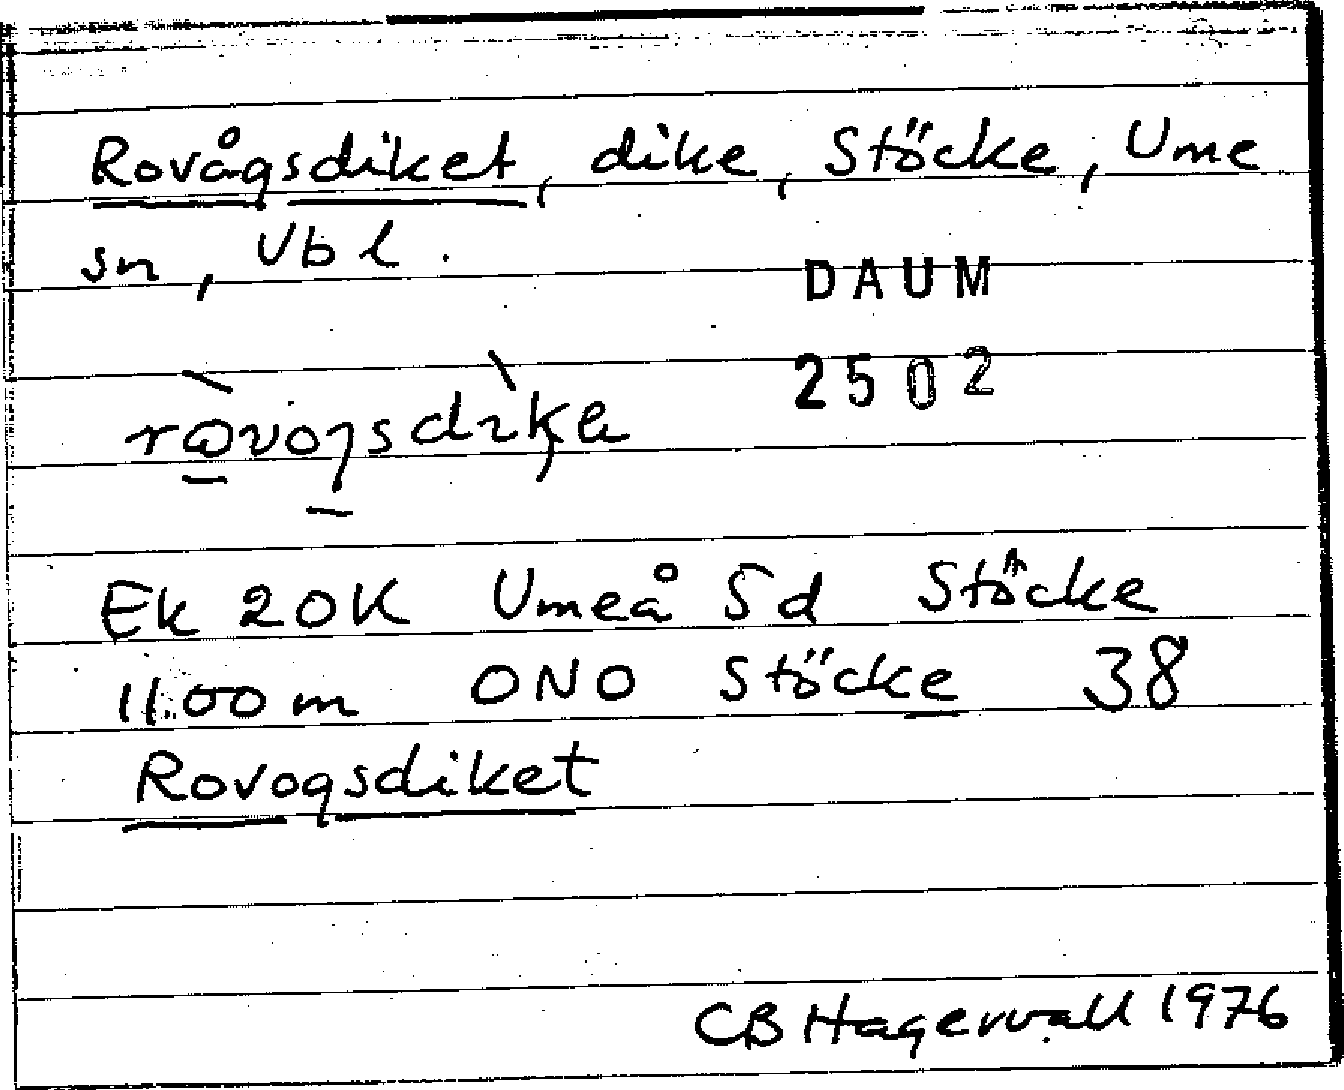 Rovågsdiket, dike, Stöcke, Ume
sn, Vbl.
DAUM
2502
Ek 20K Umeå Sd Stöcke
1100 m ONO Stöcke 38
Rovogsdiket
CB Hagervall 1976